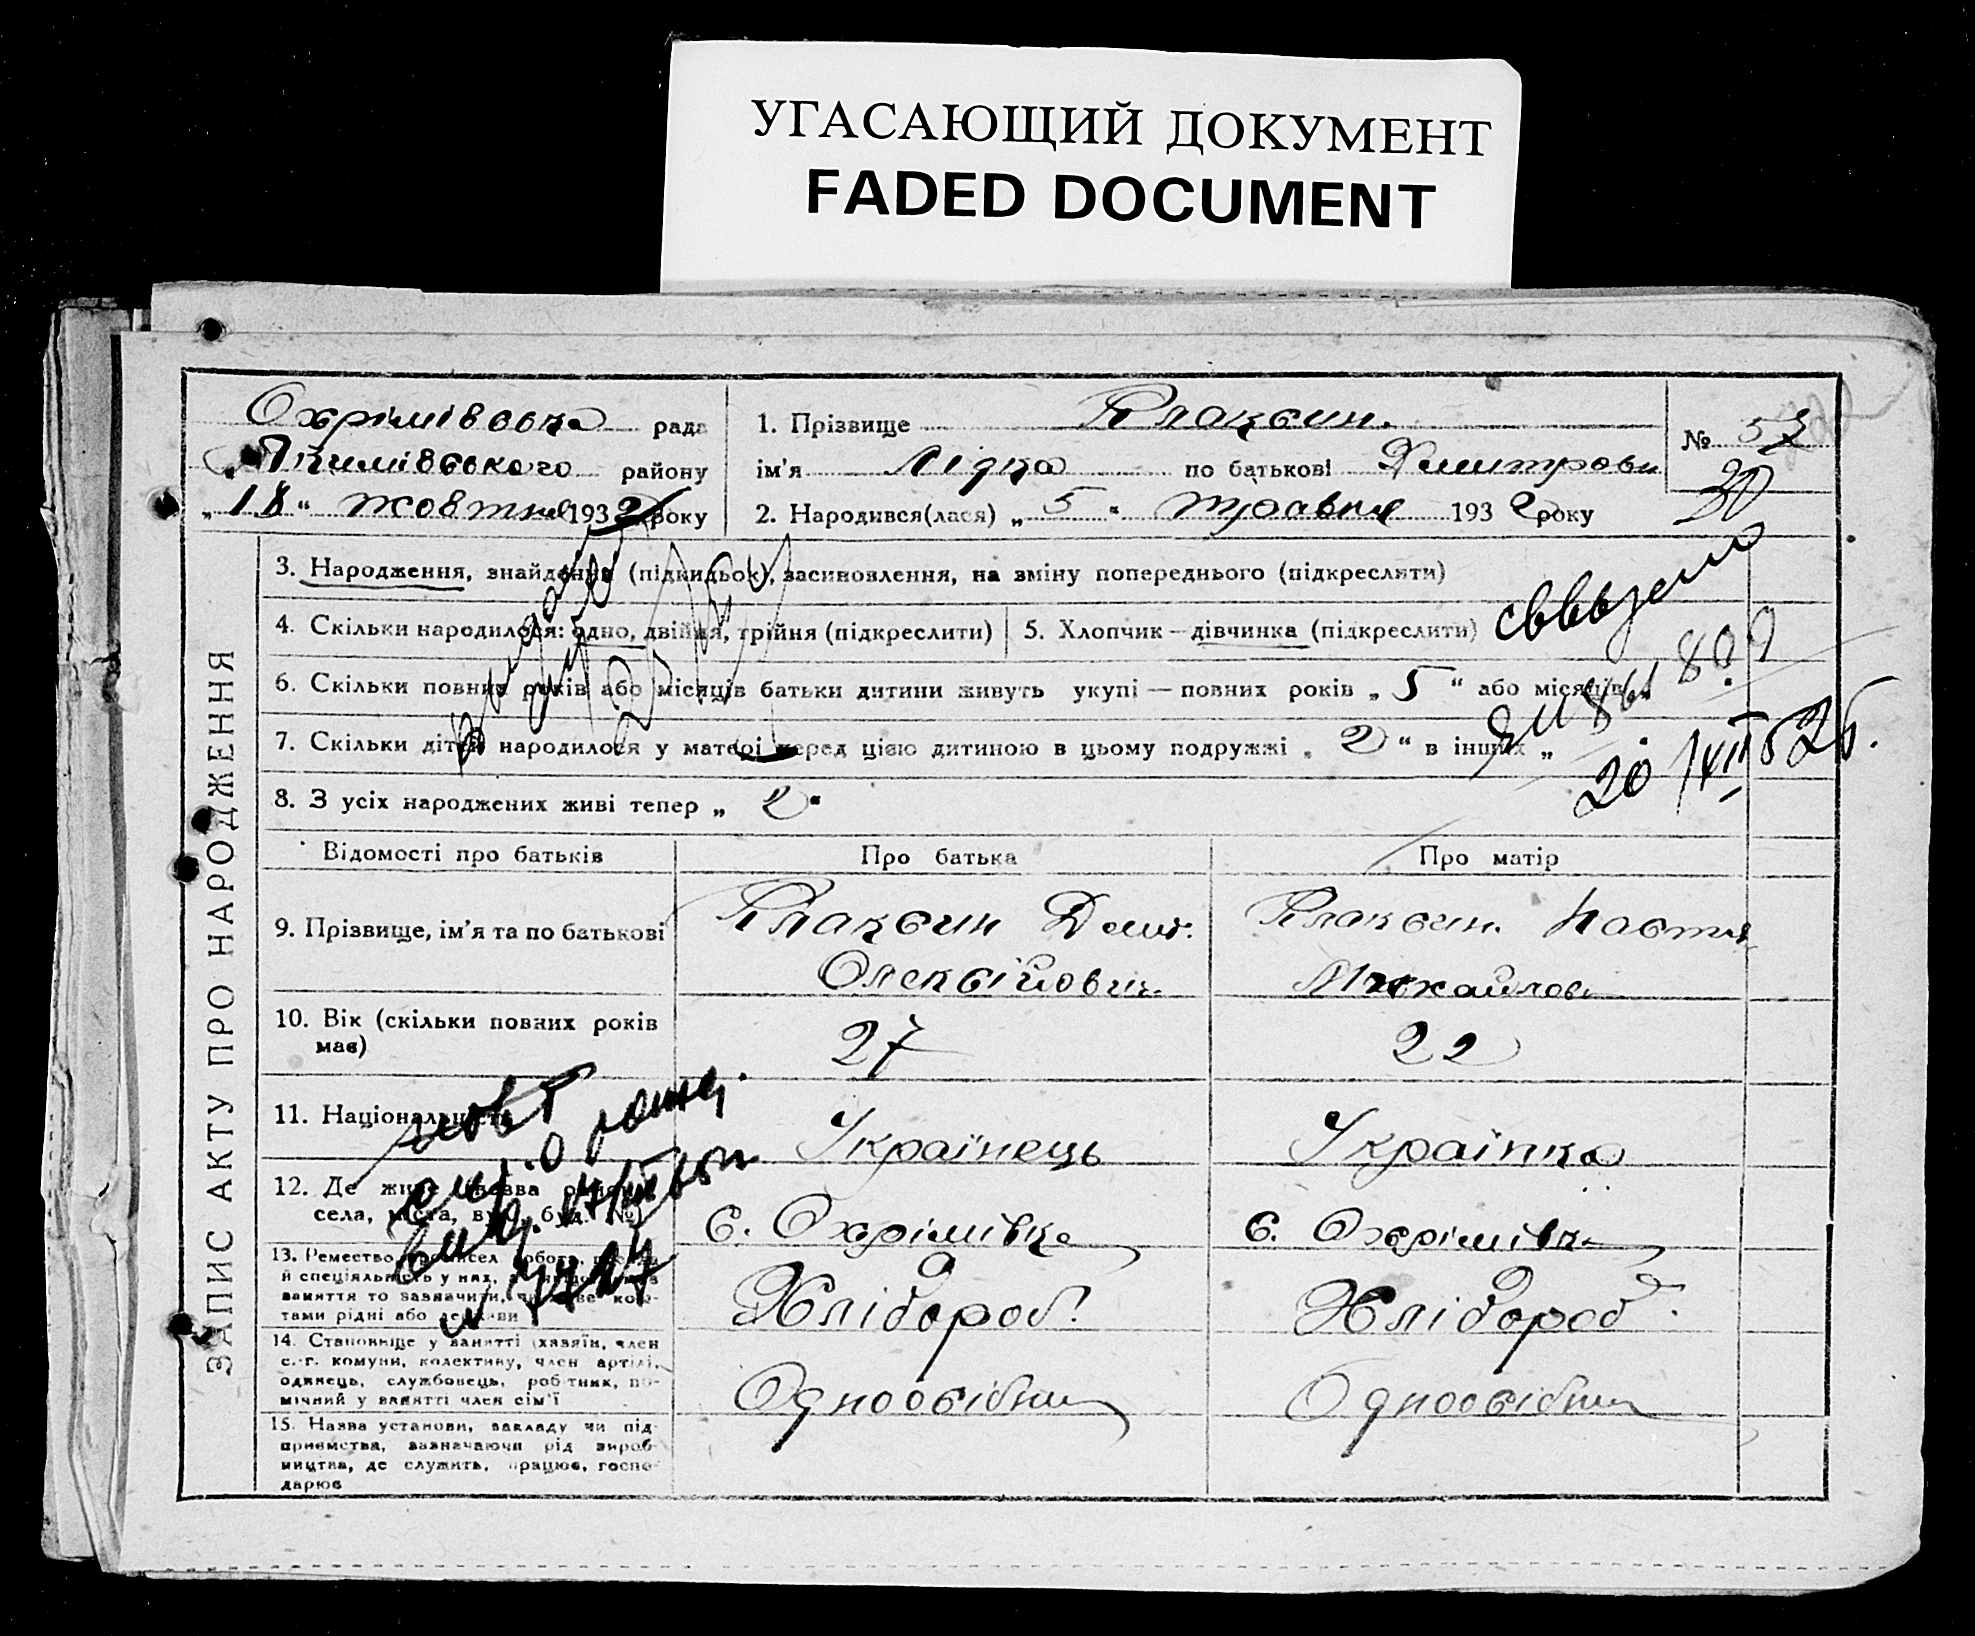 УГАСАЮЩИЙ ДОКУМЕНТ
FADED DOCUMENT
Охрімівська рада
Якимівського району
"18" жовтня 1932 року
1. Прізвище Плаксин.
ім'я Лідка по батькові Дмитрови
2. Народився(лася) "5" травня 1932 року
№ 57
30
ЗАПИС АКТУ ПРО НАРОДЖЕННЯ
3. Народження, знайдення (підкидьок), засиновлення, на зміну попереднього (підкреслити)
4. Скільки народилося: одно, двійня, трійня (підкреслити)
5. Хлопчик — дівчинка (підкреслити)
6. Скільки повних років або місяців батьки дитини живуть укупі — повних років "5" або місяців "
7. Скільки дітей народилося у матері перед цією дитиною в цьому подружжі "2" в інших "
8. З усіх народжених живі тепер "2"
Відомості про батьків
Про батька
Про матір
9. Прізвище, ім'я та по батькові
Плаксин Дмит.
Олексійович
Плаксин. Настя
Михайлов
10. Вік (скільки повних років має)
27
22
11. Національність
Українець
Українка
12. Де живе
села, міста, вул., буд. №
с. Охрімівка
с. Охрімівка
13. Ремество
й спеціяльність у них,
заняття то зазначити,
тами рідні або держави
Хлібороб.
Хлібороб.
14. Становище у занятті (хазяїн, член
с.-г. комуни, колективу, член артілі,
одинець, службовець, робітник, по-
мічний у занятті член сім'ї
Одноосібник
Одноосібник
15. Назва установи, закладу чи під-
приємства, зазначаючи рід вироб-
ництва, де служить, працює, госпо-
дарює